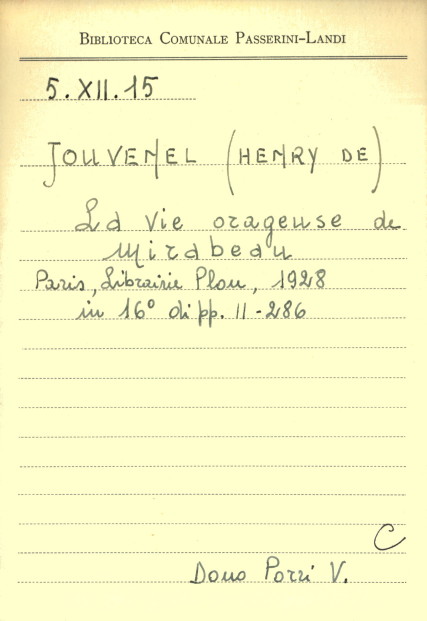 BIBLIOTECA COMUNALE PASSERINI-LANDI
5.XII.15
JOUVENEL (HENRY DE)
La vie orageuse de
Mirabeau
Paris, Librairie Plon, 1928
in 16° di pp. II-286
C
Dono Porri V.